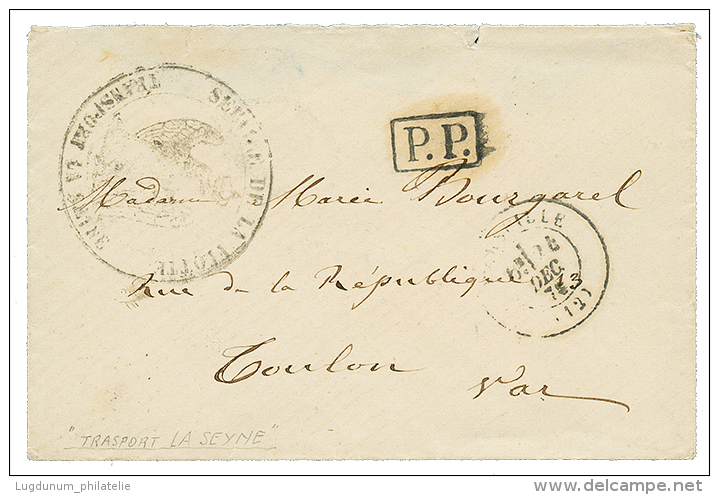 TRANSPORT LA SEYNE
SERVICE DE LA FLOTTE
P.P.
Madame Marie Bourgarel
Rue de la République 13
Toulon
Var
DEC.
(12)
"TRASPORT LA SEYNE"
Lugdunum_philatelie
delcampe.net